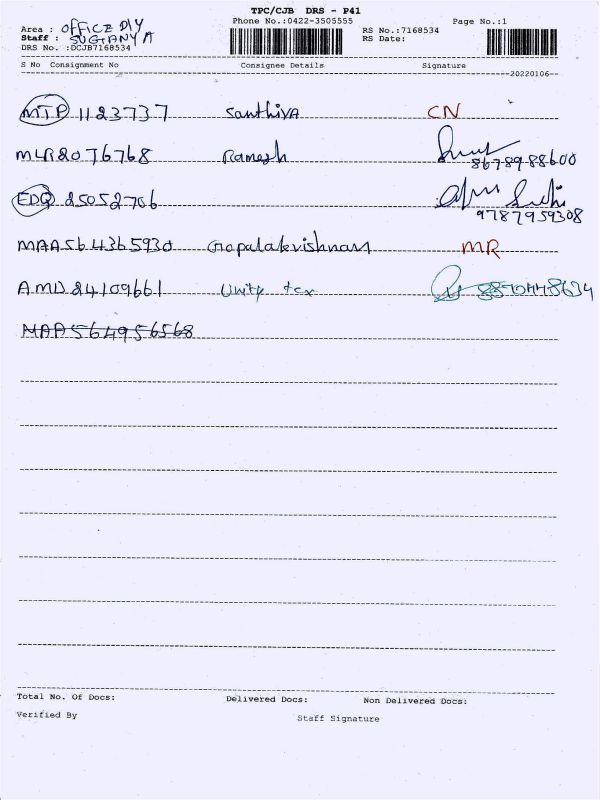 TPC/CJB DRS - P41
Area : OFFICE DIY Phone No.:0422-3505555 RS No.:7168534 Page No.:1
Staff : SUGIANYA RS Date:
DRS No. :DCJB7168534
S No Consignment No Consignee Details Signature
20220106
MTP 1123737 Santhiya CN
MLR2076768 Ramesh 8678988600
EDQ 25052706 9787959308
MAA564365930 Gopalakrishnan MR
AMD24109661 Unity tex 8870448634
MAA564956568
Total No. Of Docs: Delivered Docs: Non Delivered Docs:
Verified By Staff Signature